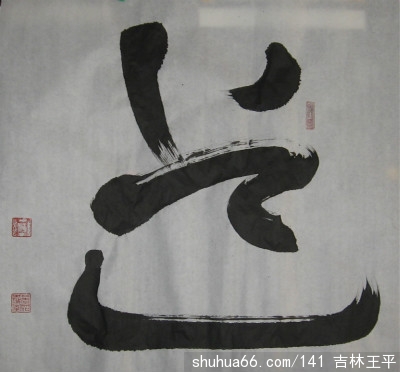 道
shuhua66.com/141 吉林王平